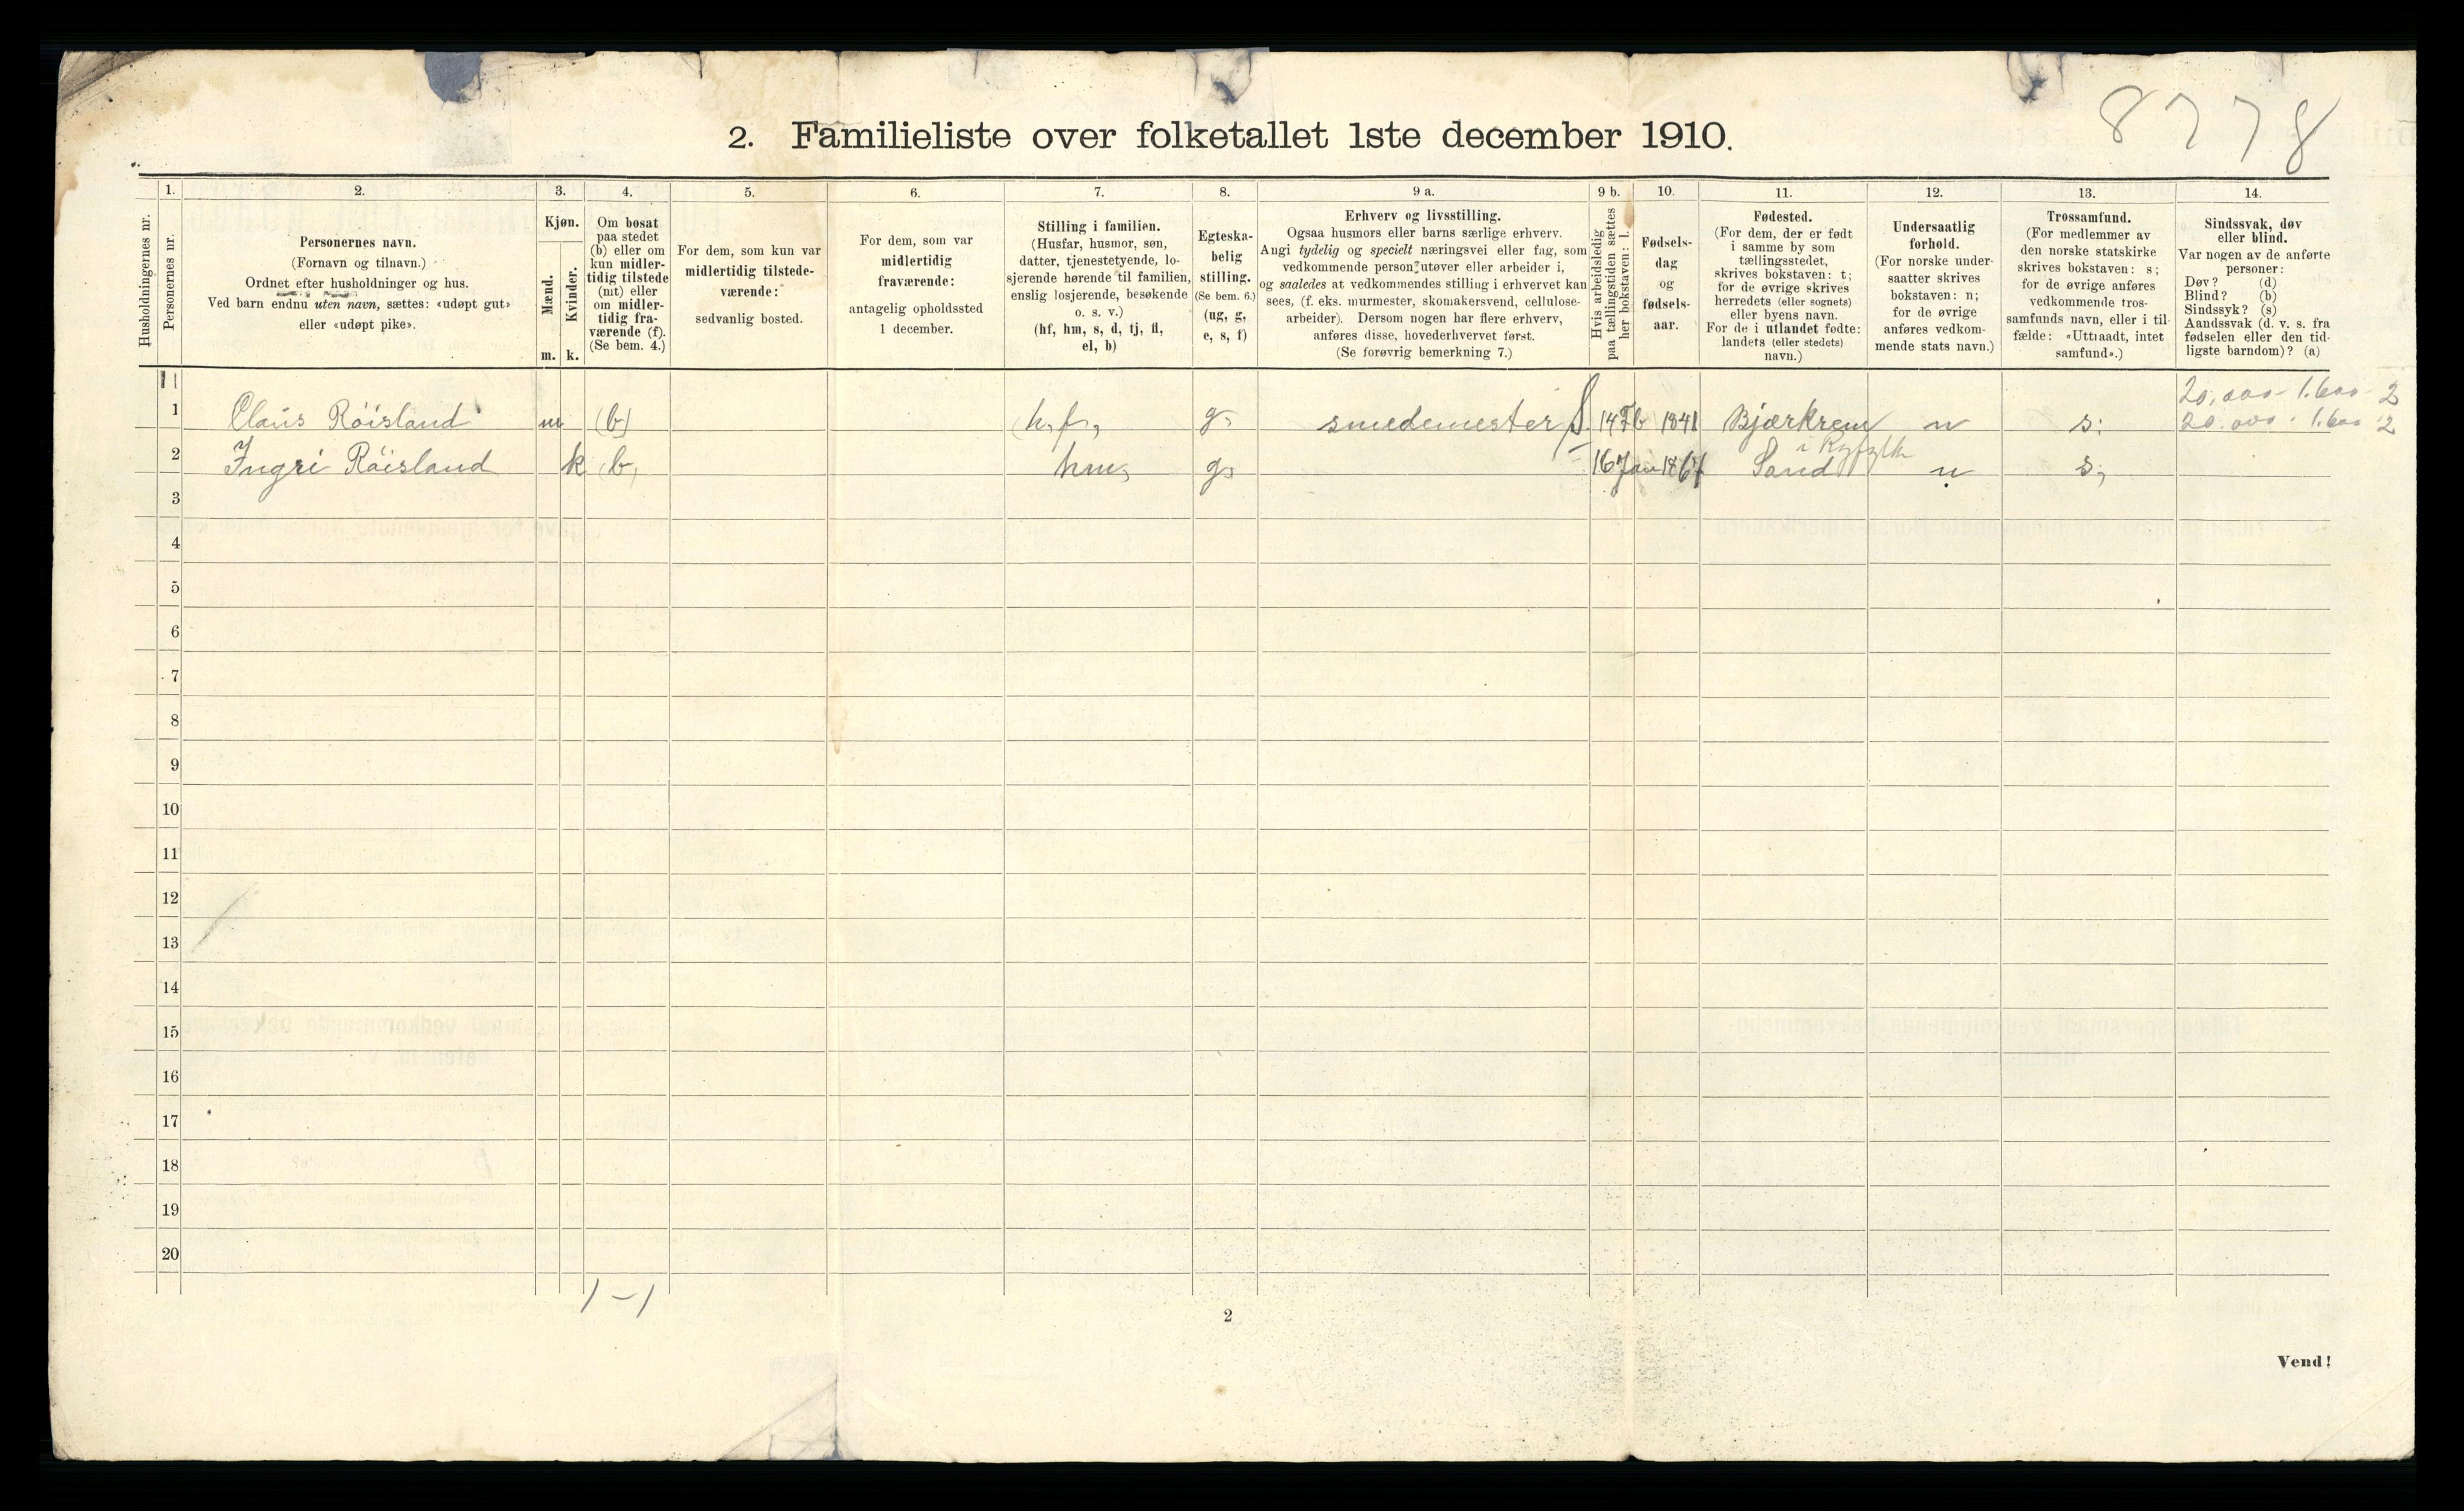 8778
2. Familieliste over folketallet 1ste december 1910.
Husholdningernes nr.
1.
Personernes nr.
2.
Personernes navn.
(Fornavn og tilnavn.)
Ordnet efter husholdninger og hus.
Ved barn endnu uten navn, sættes: «udøpt gut»
eller «udøpt pike».
3.
Kjøn.
Mænd.
m.
Kvinder.
k.
4.
Om bosat
paa stedet
(b) eller om
kun midler-
tidig tilstede
(mt) eller
om midler-
tidig fra-
værende (f).
(Se bem. 4.)
5.
For dem, som kun var
midlertidig tilstede-
værende:
sedvanlig bosted.
6.
For dem, som var
midlertidig
fraværende:
antagelig opholdssted
1 december.
7.
Stilling i familien.
(Husfar, husmor, søn,
datter, tjenestetyende, lo-
sjerende hørende til familien,
enslig losjerende, besøkende
o. s. v.)
(hf, hm, s, d, tj, fl,
el, b)
8.
Egteska-
belig
stilling.
(Se bem. 6.)
(ug, g,
e, s, f)
9 a.
Erhverv og livsstilling.
Ogsaa husmors eller barns særlige erhverv.
Angi tydelig og specielt næringsvei eller fag, som
vedkommende person utøver eller arbeider i,
og saaledes at vedkommendes stilling i erhvervet kan
sees, (f. eks. murmester, skomakersvend, cellulose-
arbeider). Dersom nogen har flere erhverv,
anføres disse, hovederhvervet først.
(Se forøvrig bemerkning 7.)
9 b.
Hvis arbeidsledig
paa tællingstiden sættes
her bokstaven: l.
10.
Fødsels-
dag
og
fødsels-
aar.
11.
Fødested.
(For dem, der er født
i samme by som
tællingsstedet,
skrives bokstaven: t;
for de øvrige skrives
herredets (eller sognets)
eller byens navn.
For de i utlandet fødte:
landets (eller stedets)
navn.)
12.
Undersaatlig
forhold.
(For norske under-
saatter skrives
bokstaven: n;
for de øvrige
anføres vedkom-
mende stats navn.)
13.
Trossamfund.
(For medlemmer av
den norske statskirke
skrives bokstaven: s;
for de øvrige anføres
vedkommende tros-
samfunds navn, eller i til-
fælde: «Uttraadt, intet
samfund».)
14.
Sindssvak, døv
eller blind.
Var nogen av de anførte
personer:
Døv? (d)
Blind? (b)
Sindssyk? (s)
Aandssvak (d. v. s. fra
fødselen eller den tid-
ligste barndom)? (a)
20.000 - 1.600 - 2
1 Claus Röisland m (b) h.f., g. smedemester S. 14 Feb 1841 Bjærkrem n s: 20.000 - 1.600 2
i Ryfylke
2 Ingri Röisland k b, hm, g, 16 Jan 1867 Sand n s,
3
4
5
6
7
8
9
10
11
12
13
14
15
16
17
18
19
20
1-1
2
Vend!